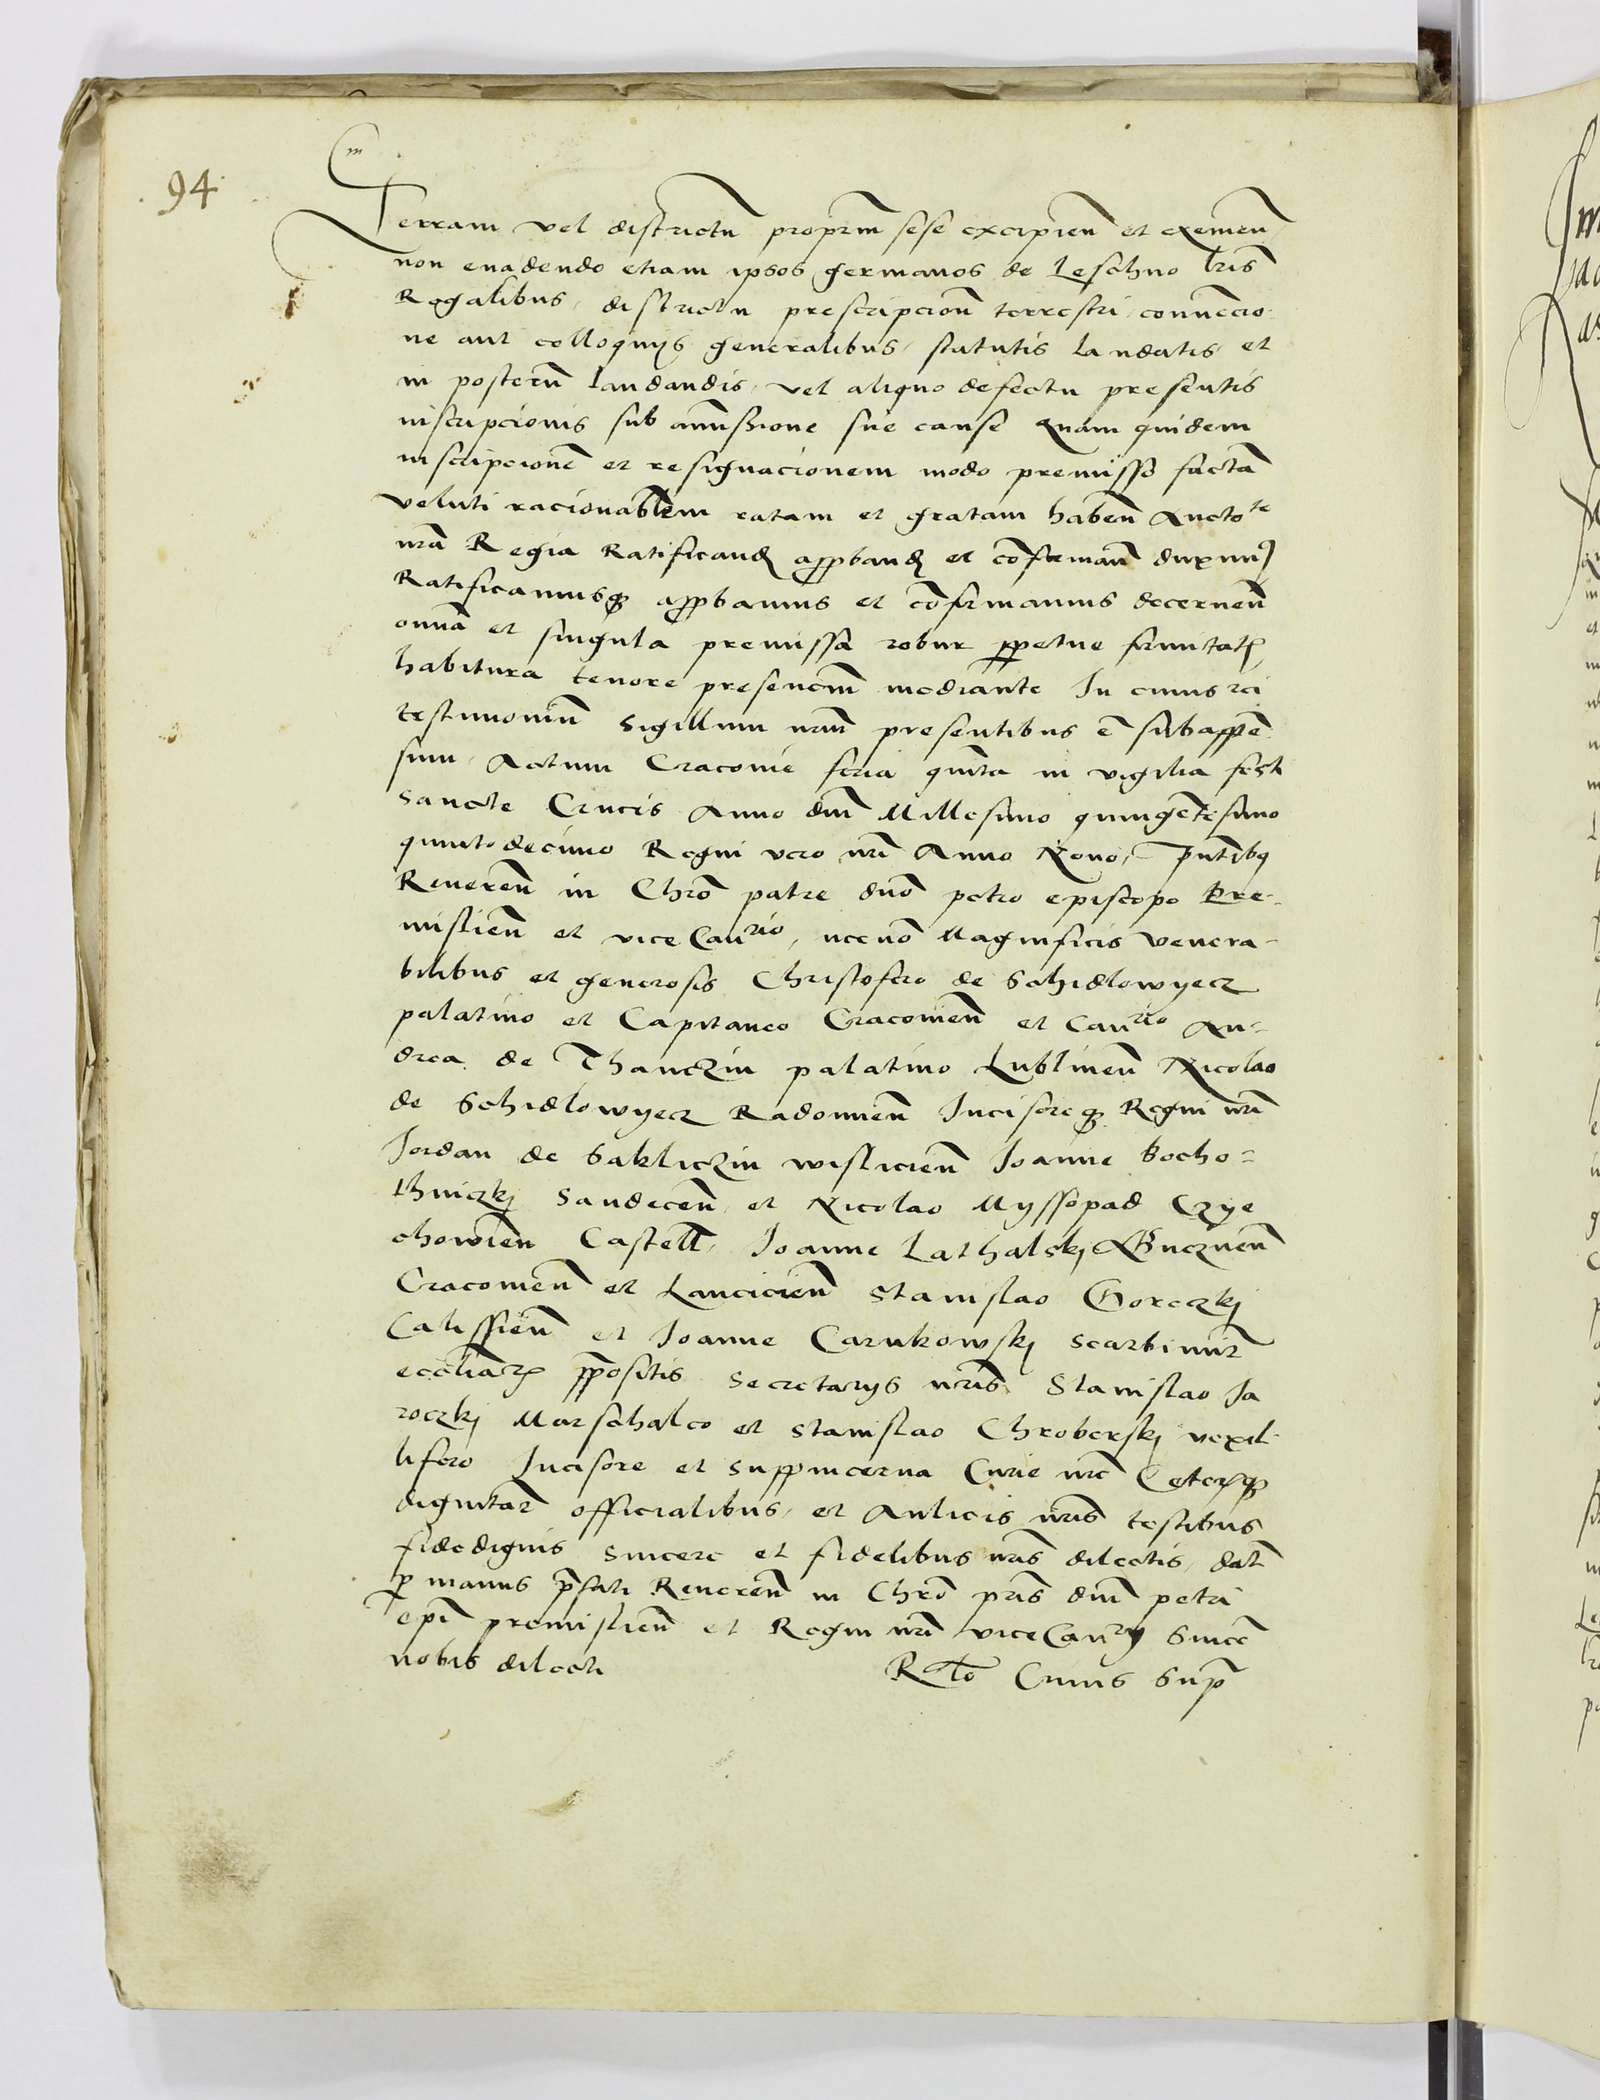 94
Terram vel districtũ propriũ sese excipieñ et eximeñ
non evadendo etiam ipsos germanos de Leschno lr̃is
Regalibus, districtu prescripcioñ terrestri, convẽcio
ne aut colloquijs generalibus, statutis laudatis et
in posterũ laudandis, vel aliquo defectu presentis
inscripcionis sub amissione sue cause Quam quidem
inscripcionẽ et resignacionem modo premisso factã
veluti racionabilem ratam et gratam habeñ Auctoᵗᵉ
nr̃a Regia Ratificanđ approbanđ et cõfirmañ duximꝰ
Ratificamusqꝫ approbamus et cõfirmamus decerneñ
omnia et singula premissa robur perpetue firmitatꝭ
habitura tenore presenciũ mediante In cuius rei
testimoniũ Sigillum nr̃m presentibus ẽ subappẽ
sum, Actum Cracovie feria quĩta in vigilia festi
Sancte Crucis Anno dni Millesimo quingẽtesimo
quinto decimo Regni vero nr̃i Anno Nono, pñtibꝰ
Reverẽn in Chrõ patre dnõ petro episcopo Pre-
mislieñ et vice Canʳⁱᵒ, necnõ Magnificis venera-
bilibus et generosis Christofero de Schidlowyecz
palatino et Capitaneo Cracovieñ et Canʳⁱᵒ An=
drea de Thanczin palatino Lublineñ Nicolao
de Schidlowyecz Radomieñ Incisoreqꝫ Regni nr̃i
Jordan de Sakliczin wislicieñ Joanne Bocho=
thniczkj Sandeceñ et Nicolao Myssopad Czye
chowieñ Castell, Joanne Lathalskj Gnezneñ
Cracovieñ et Lancicieñ Stanislao Goreczkj
Calissieñ et Joanne Carnkowskj Scarbimir̃
eccliarꝫ ppositis Secretarijs nr̃is Stanislao Ja
roczkj Marschalco et Stanislao Chroberskj vexil
lifero Incisore et suppincerna Curie nr̃e Ceterisqꝫ
dignitar̃ officialibus, et Aulicis nr̃is testibus
fidedignis Sincere et fidelibus nr̃is dilectis, dat̃
p manus pr̃fati Reverẽn in Chrõ pr̃is dni petri
Ep̃i premislieñ et Regni nr̃i vice Canʳij Sincẽ
nobis dilecti
Rᵗⁱᵒ Cuius Supᵃ